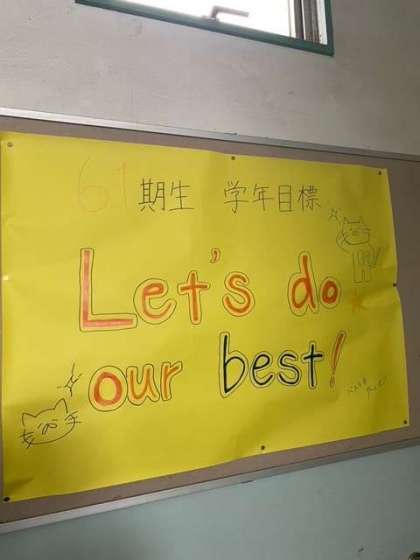 61期生 学年目標
Let's do
our best!